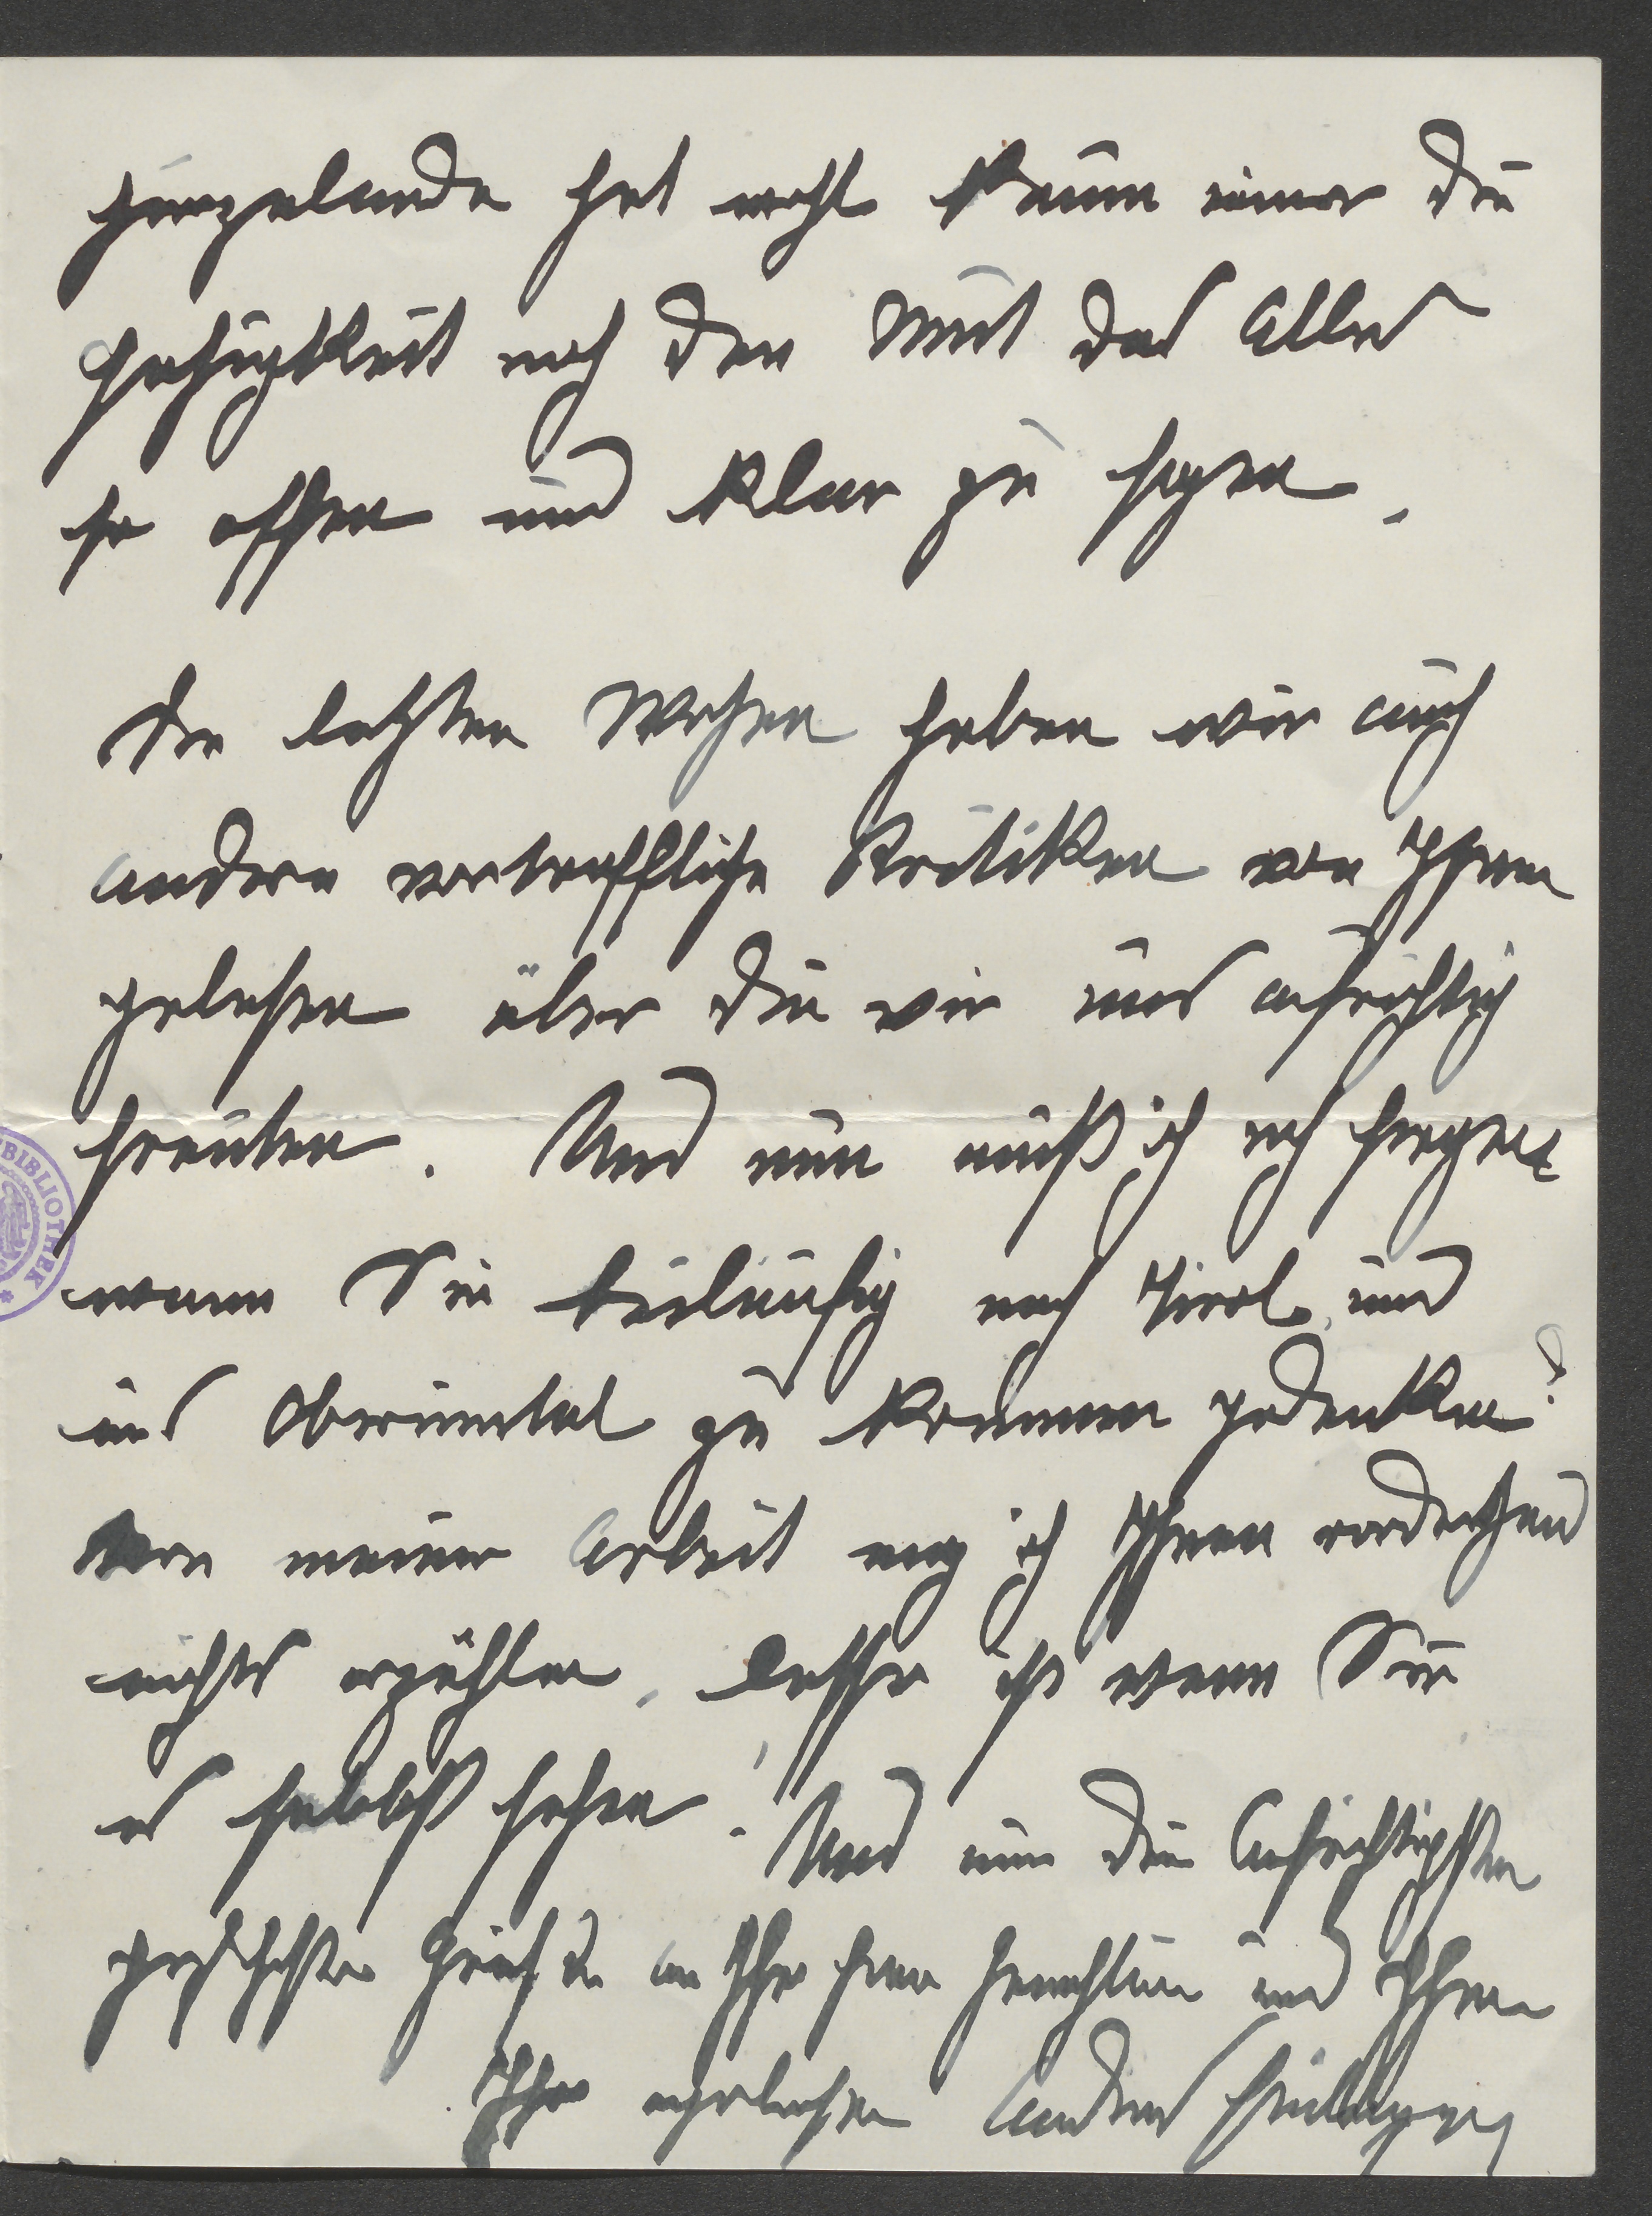 hierzulande hat wohl kaum einer die
Fähigkeit noch den Mut das Alles
so offen und klar zu sagen.
Die letzten Wochen haben wir auch
andere vortreffliche Kritiken von Ihnen
gelesen über die wir uns aufrichtig
freuten. Und nun muß ich noch fragen
wann Sie beiläufig nach Tirol, und
ins Oberinntal zu kommen gedenken?
Von meiner Arbeit mag ich Ihnen
nichts erzählen, besser ist wenn Sie
es selbst sehen! Und nun die aufrichtigsten
herzlichsten Grüße an Ihre Frau Gemahlin und Ihnen
Ihr ergebener Andreas
BIBLIOTHEK